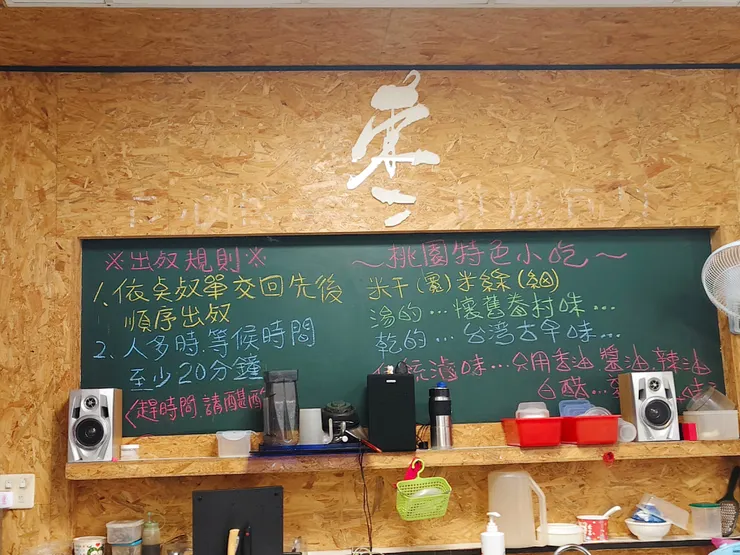 ※出𣦼規則※
1、依奌𣦼單交回先後
順序出𣦼
2、人多時、等候時間
至少20分鐘
〈趕時間、請
～桃園特色小吃～
米干(寬)米絲(細)
湯的…懷舊眷村味…
乾的…台湾古早味…
統滷味…只用香油、醬油、辣油
白醋…